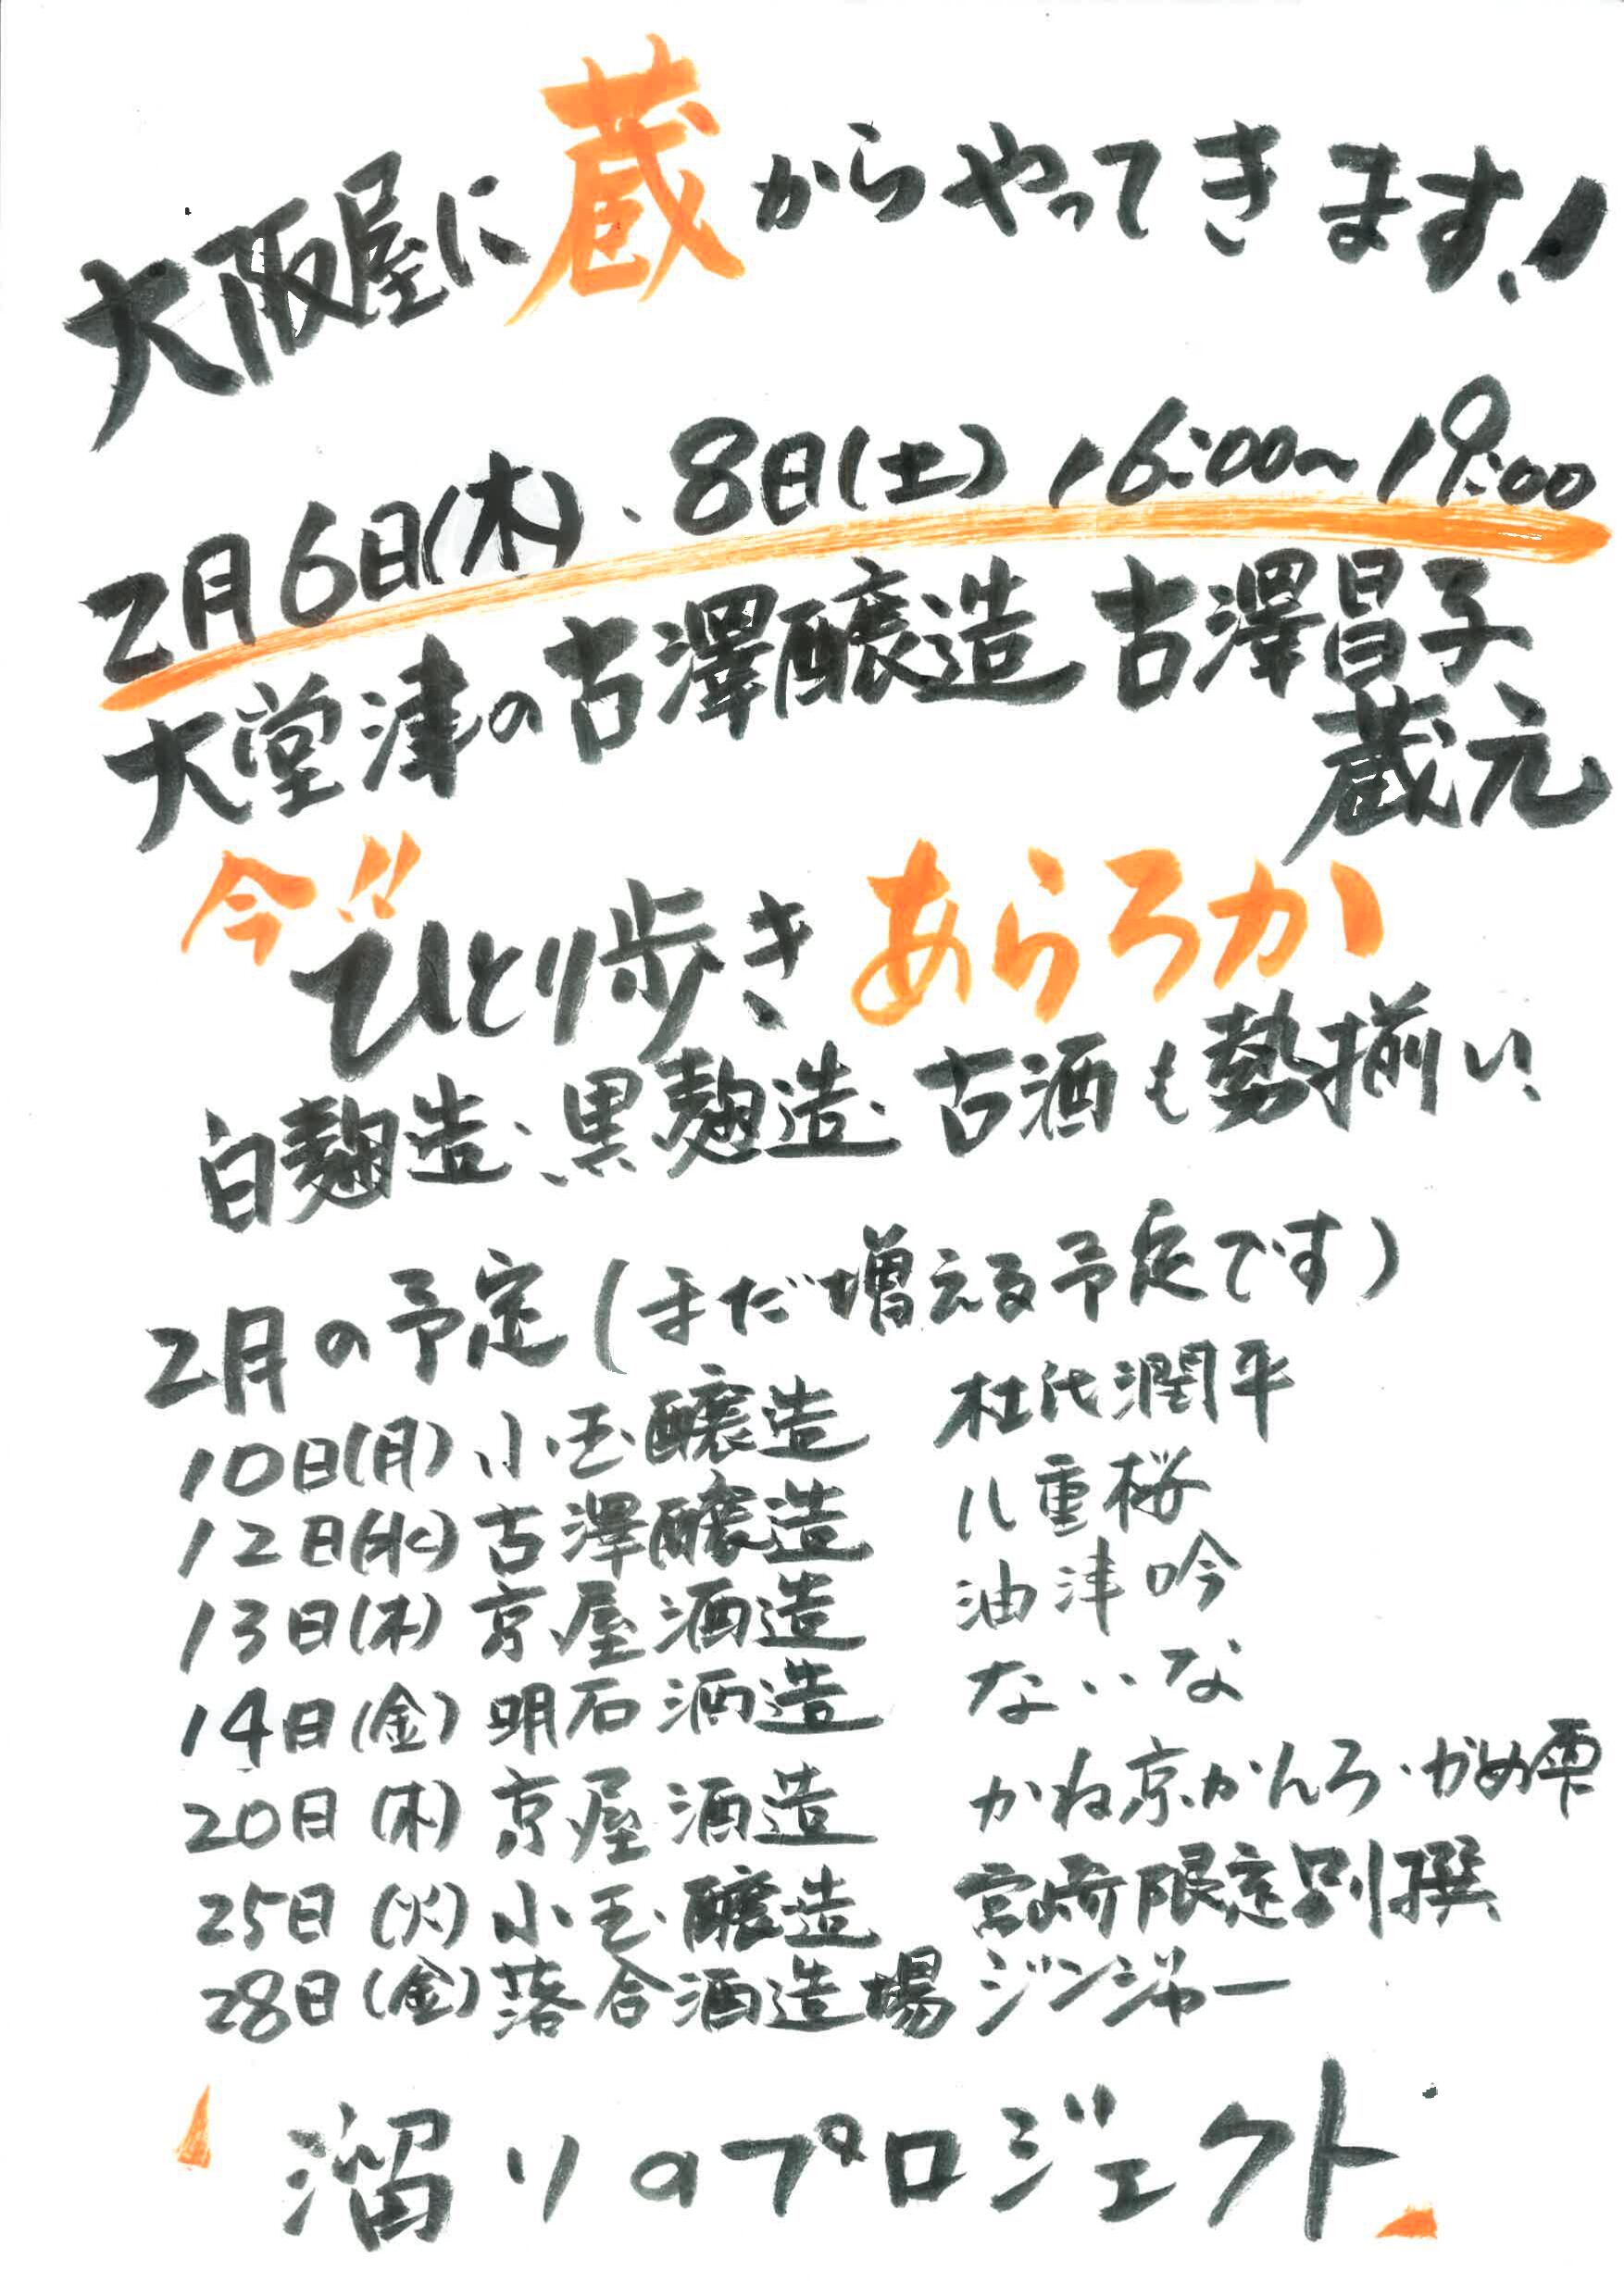 大阪屋に蔵からやってきます!
2月6日(木)、8日(土) 16:00〜19:00
大堂津の古澤醸造 古澤昌子
蔵元
今!!
ひとり歩き あらろか
白麹造、黒麹造、古酒も勢揃い
2月の予定(まだ増える予定です)
10日(月) 小玉醸造 杜氏潤平
12日(水) 古澤醸造 八重桜
13日(木) 京屋酒造 油津吟
14日(金) 明石酒造 ないな
20日(木) 京屋酒造 かね京かんろ・かめ雫
25日(火) 小玉醸造 宮崎限定別撰
28日(金) 落合酒造場 ジンジャー
溜りのプロジェクト